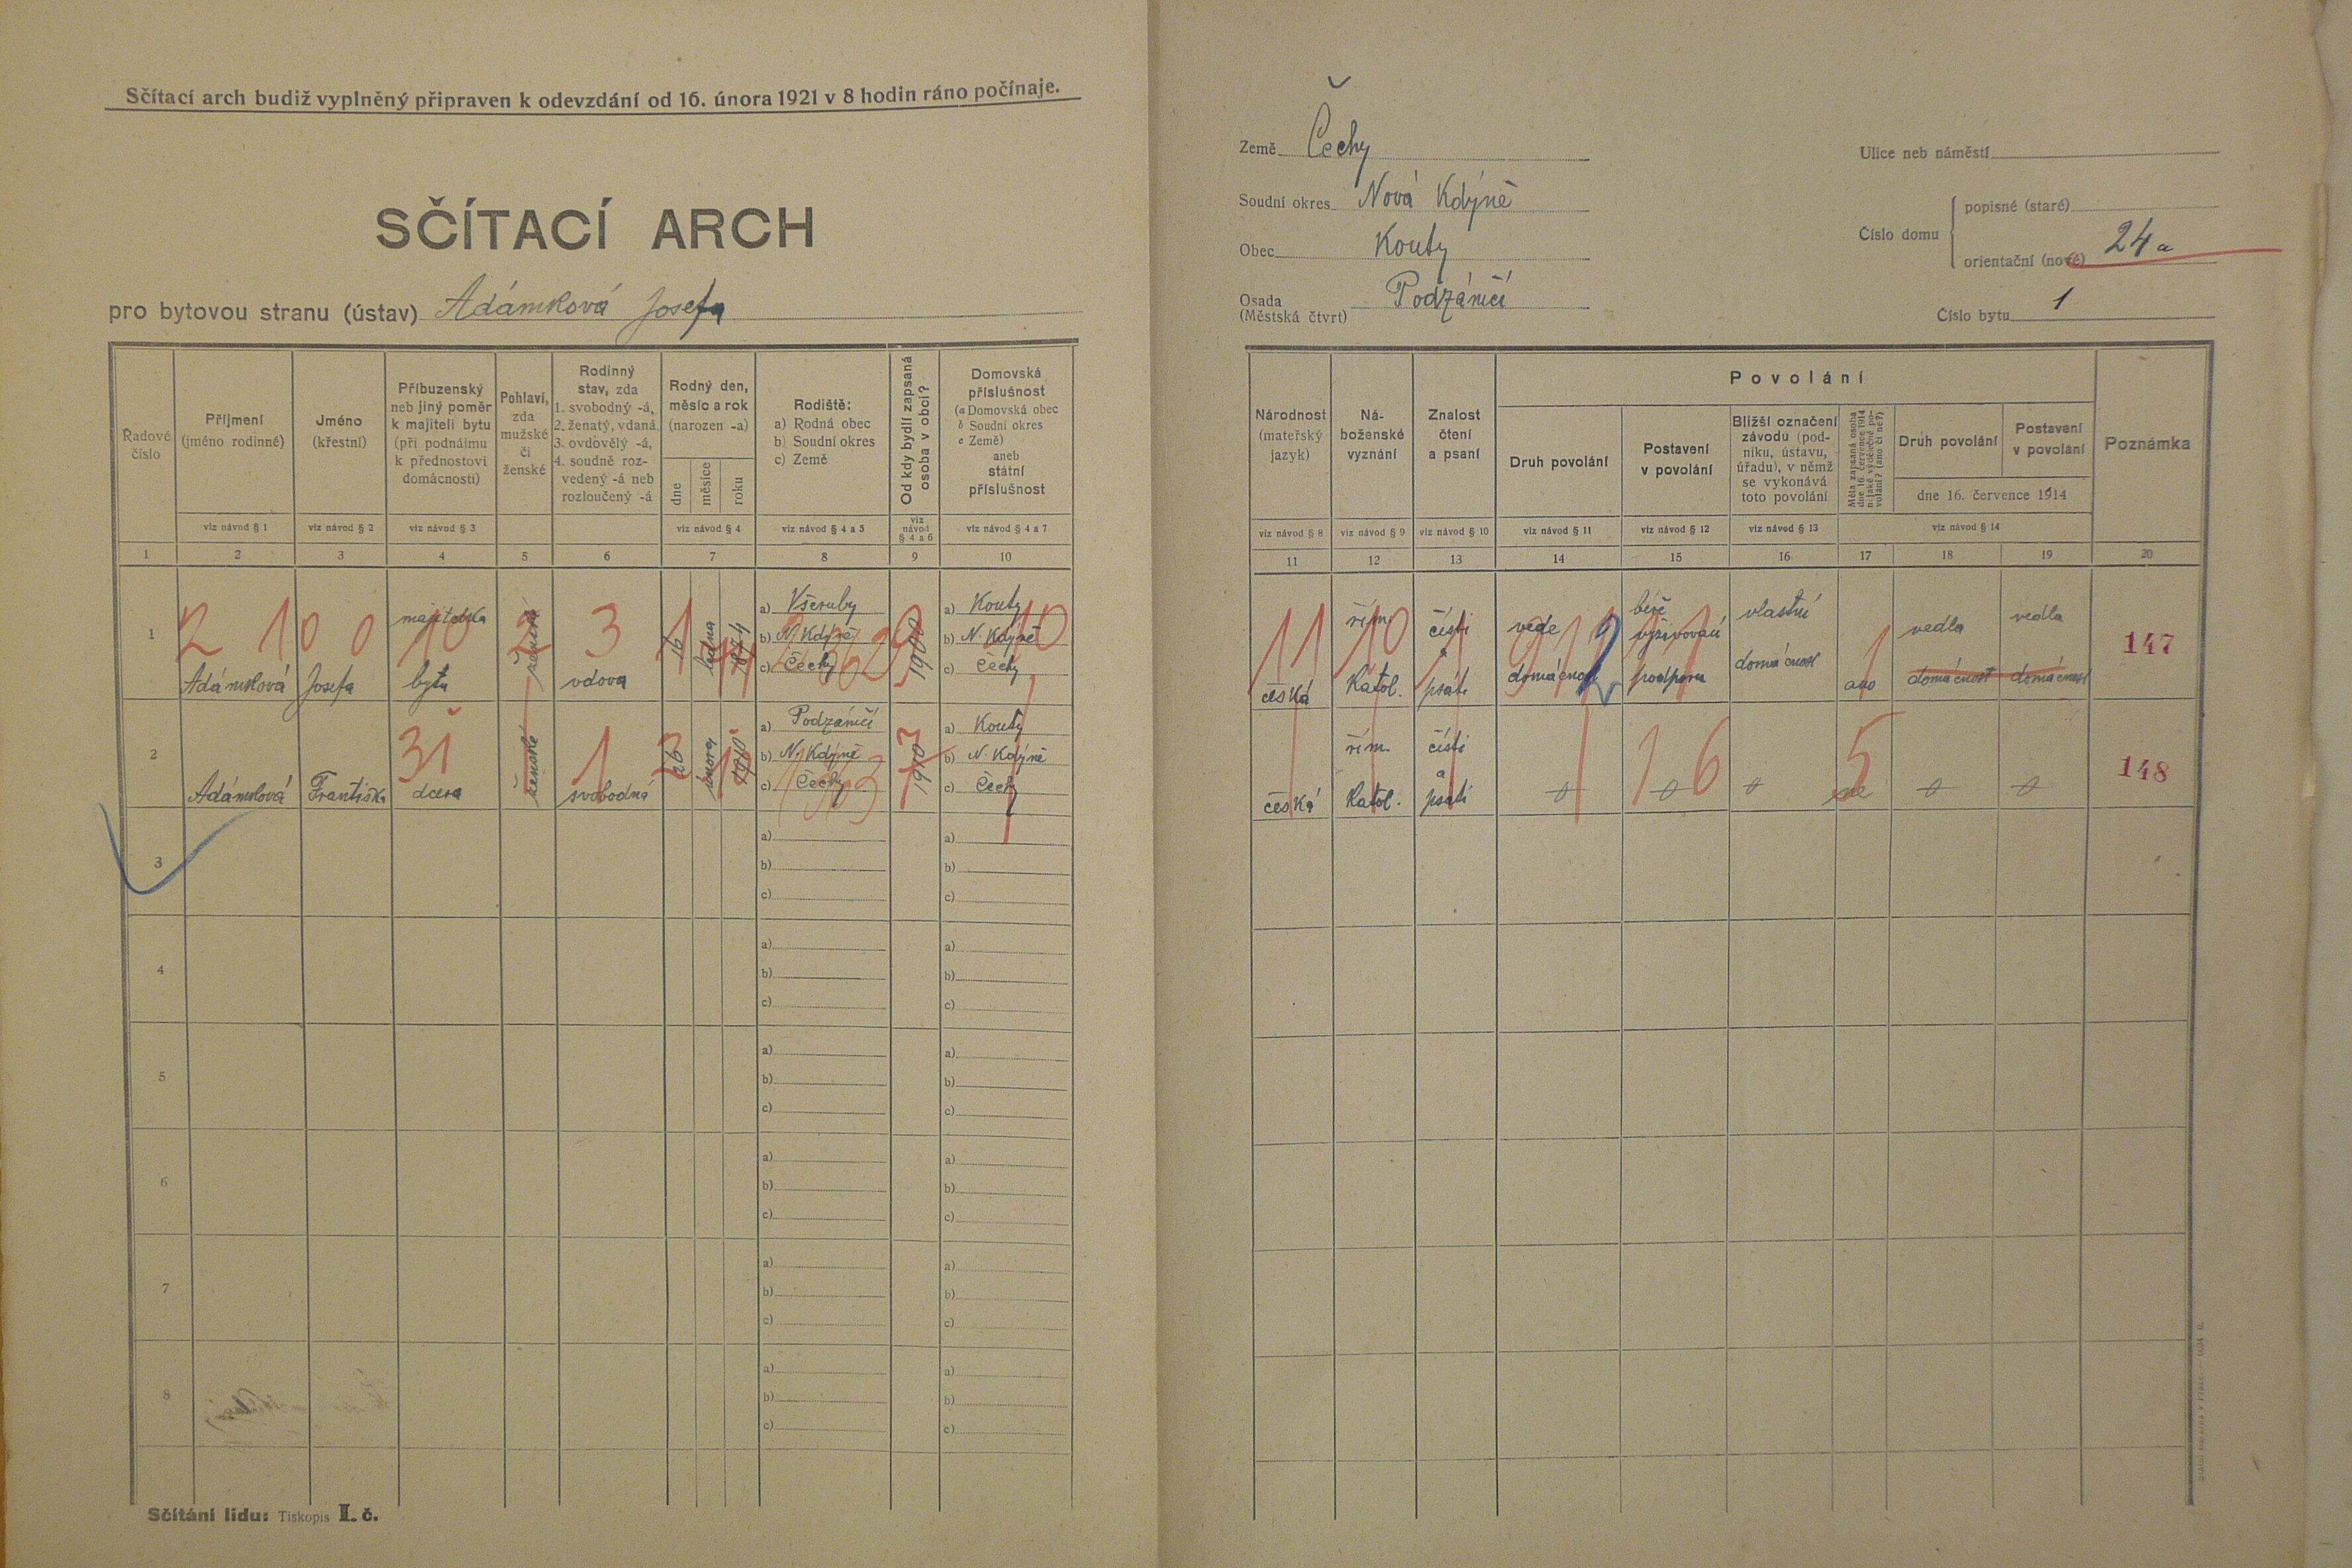 Sčítací arch budiž vyplněný připraven k odevzdání od 16. února 1921 v 8 hodin ráno počínaje.
SČÍTACÍ ARCH
pro bytovou stranu (ústav) Adámková Josefa
Země Čechy
Soudní okres Nová Kdýně
Obec Kouty
Osada Podzámčí
(Městská čtvrt)
Ulice neb náměstí
Číslo domu
popisné (staré)
orientační (nové) 24a
Číslo bytu 1
Řadové číslo
Příjmení (jméno rodinné)
Jméno (křestní)
Příbuzenský neb jiný poměr k majiteli bytu (při podnájmu k přednostovi domácnosti)
Pohlaví, zda mužské či ženské
Rodinný stav, zda
1. svobodný -á,
2. ženatý, vdaná,
3. ovdovělý -á,
4. soudně rozvedený -á neb rozloučený -á
Rodný den, měsíc a rok (narozen -a)
dne
měsíce
roku
Rodiště:
a) Rodná obec
b) Soudní okres
c) Země
Od kdy bydlí zapsaná osoba v obci?
Domovská příslušnost
(a Domovská obec
b Soudní okres
c Země)
aneb
státní příslušnost
viz návod § 1
viz návod § 2
viz návod § 3
viz návod § 4
viz návod § 4 a 5
viz návod § 4 a 6
viz návod § 4 a 7
1 2 3 4 5 6 7 8 9 10
Národnost (mateřský jazyk)
Náboženské vyznání
Znalost čtení a psaní
Povolání
Druh povolání
Postavení v povolání
Bližší označení závodu (podniku, ústavu, úřadu), v němž se vykonává toto povolání
Měla zapsaná osoba dne 16. července 1914 nějaké výdělečné povolání? (ano či ne?)
Druh povolání
Postavení v povolání
dne 16. července 1914
Poznámka
viz návod § 8
viz návod § 9
viz návod § 10
viz návod § 11
viz návod § 12
viz návod § 13
viz návod § 14
11 12 13 14 15 16 17 18 19 20
1
2 10 0
Adámková
Josefa
majitelka
bytu
10
ženské
2
3
vdova
16
ledna
1874
a) Všeruby
b) N. Kdýně
c) Čechy
1900
a) Kouty
b) N. Kdýně
c) Čechy
10
česká
11
řím.
katol.
10
čísti
a
psáti
1
vede
domácnost
béře
vyživovací
podporu
vlastní
domácnost
ano
1
vedla
domácnost
vedla
domácnost
147
2
Adámková
Františka
31
dcera
ženské
1
svobodná
26
února
1910
a) Podzámčí
b) N. Kdýně
c) Čechy
1910
a) Kouty
b) N. Kdýně
c) Čechy
česká
řím.
katol.
čísti
a
psáti
1
16
5
ne
148
3
a)
b)
c)
a)
b)
c)
4
a)
b)
c)
a)
b)
c)
5
a)
b)
c)
a)
b)
c)
6
a)
b)
c)
a)
b)
c)
7
a)
b)
c)
a)
b)
c)
8
a)
b)
c)
a)
b)
c)
Sčítání lidu: Tiskopis I. č.